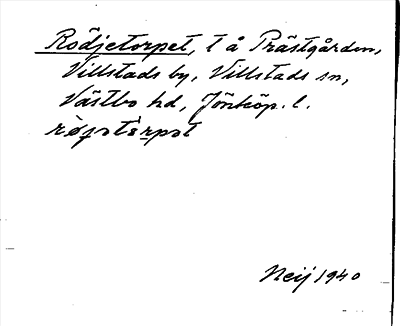 Rödjetorpet, t å Prästgården,
Villstads by, Villstads sn,
Västbo hd, Jönköp. l.
Neij 1940